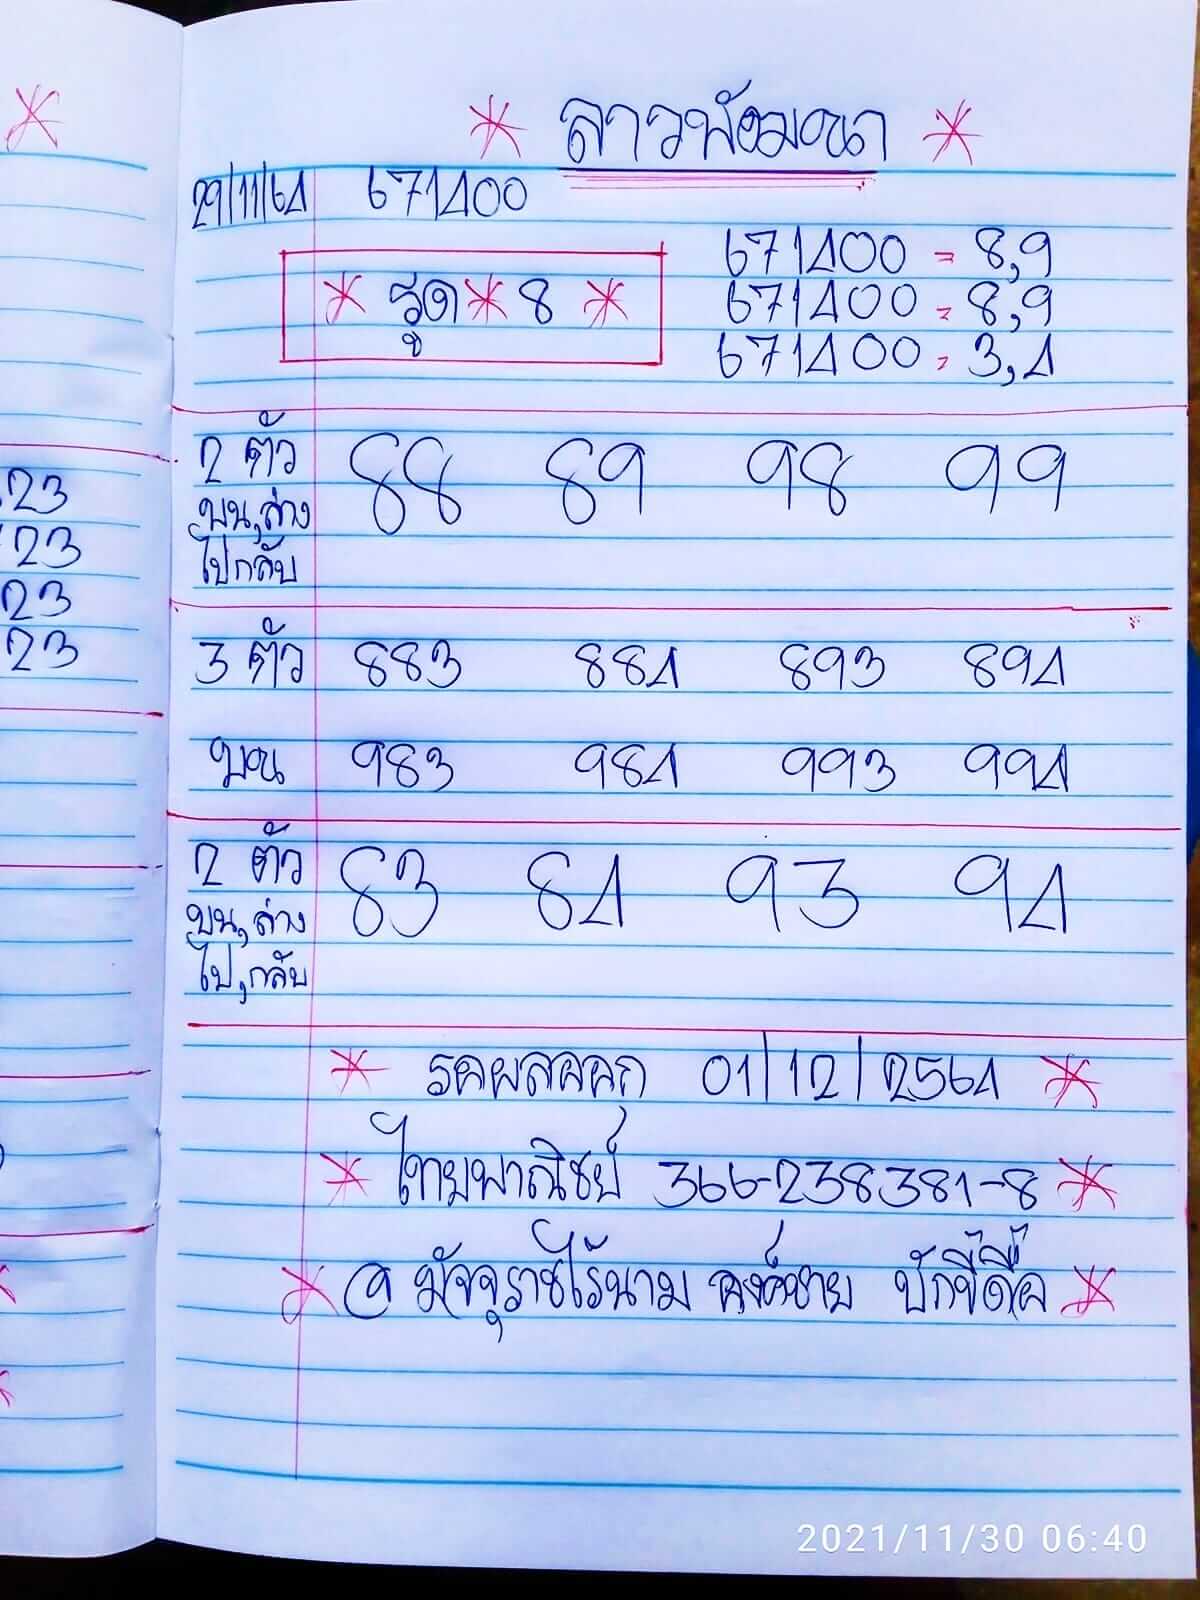 ลาวพัฒนา
29/11/64 671400
671400 = 8,9
รูด 8
671400 = 8,9
671400 = 3,4
2 ตัว 88 89 98 99
บน,ล่าง
ไปกลับ
3 ตัว 883 884 893 894
บน 983 984 993 994
2 ตัว 83 84 93 94
บน,ล่าง
ไป,กลับ
รอผลออก 01/12/2564
ไทยพาณิชย์ 366-238381-8
@ มัจจุราชไร้นาม องค์ชาย บักขี้ดื้อ
23
23
23
23
2021/11/30 06:40